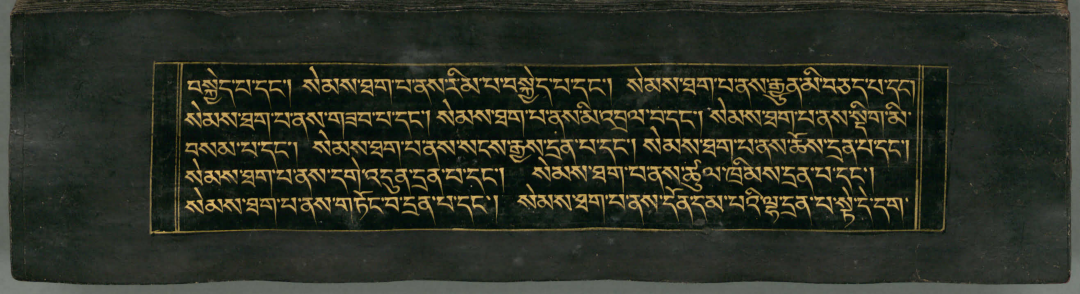 བསྐྱེད་པ་དང་། སེམས་ཐག་པ་ནས་རི་མི་པ་བསྐྱེད་པ་དང་། སེམས་ཐག་པ་ནས་རྒྱུན་མི་བཅད་པ་དང
སེམས་ཐག་པ་ནས་གཟབ་པ་དང་། སེམས་ཐག་པ་ནས་མི་འབྲལ་བ་དང་། སེམས་ཐག་པ་ནས་སྡིག་མི་
བསམ་པ་དང་། སེམས་ཐག་པ་ནས་སངས་རྒྱས་དྲན་པ་དང་། སེམས་ཐག་པ་ནས་ཆོས་དྲན་པ་དང་།
སེམས་ཐག་པ་ནས་དགེ་འདུན་དྲན་པ་དང་། སེམས་ཐག་པ་ནས་ཚུལ་ཁྲིམས་དྲན་པ་དང་།
སེམས་ཐག་པ་ནས་གཏོང་བ་དྲན་པ་དང་། སེམས་ཐག་པ་ནས་དོན་དམ་པའི་ལྷ་དྲན་པ་སྟེ་དེ་དག་